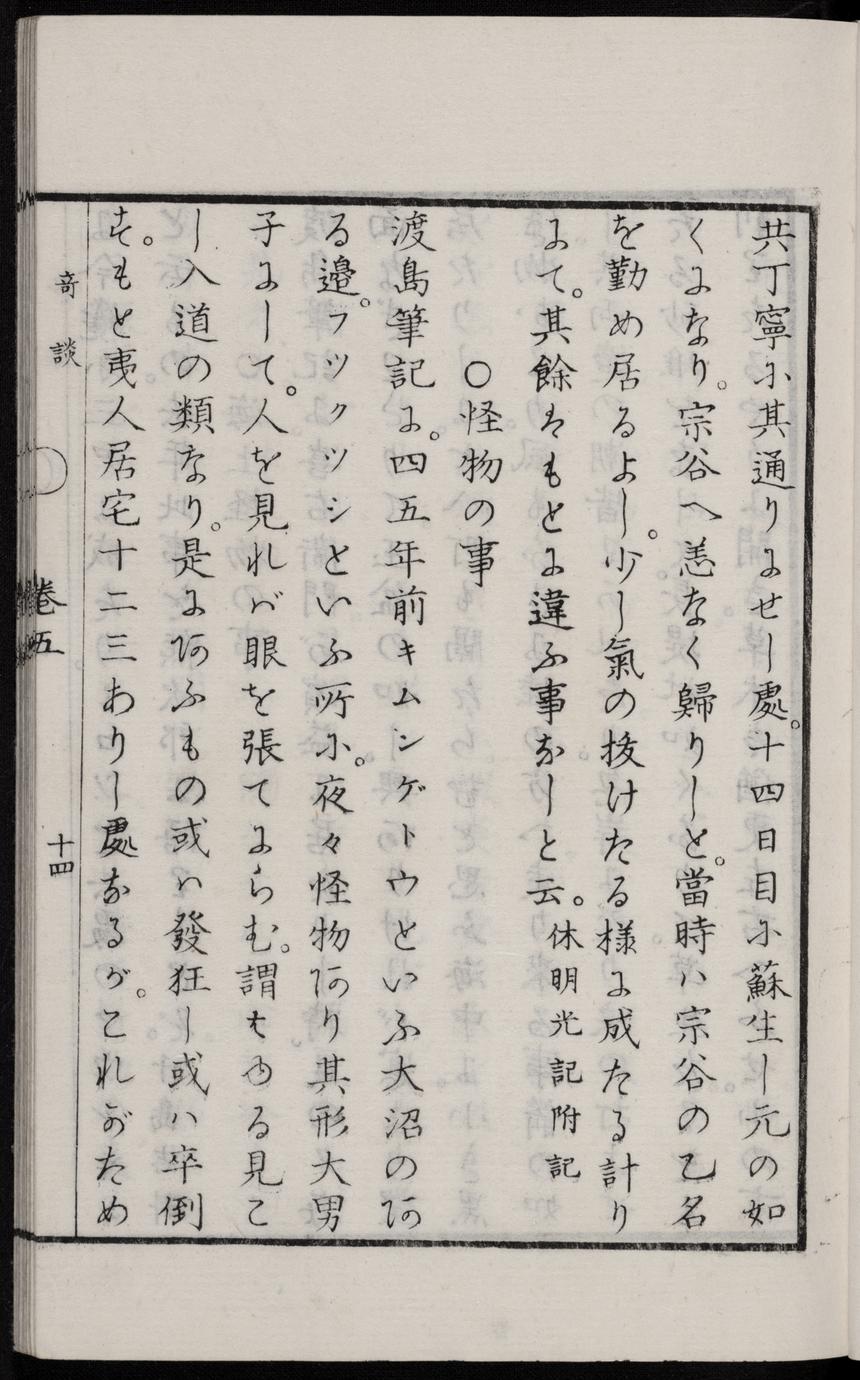 共丁寧に其通りにせし處。十四日目に蘇生し元の如
くになり。宗谷へ恙なく歸りしと。當時ハ宗谷の乙名
を勤め居るよし。少し氣の拔けたる樣に成たる計り
にて。其餘はもとに違ふ事なしと云。休明光記附記
○怪物の事
渡島筆記に。四五年前キムンゲトウといふ大沼のあ
る邉。フツクツシといふ所に。夜々怪物あり其形大男
子にして。人を見れバ眼を張てにらむ。謂はゆる見こ
し入道の類なり。是にあふもの或ハ發狂し或ハ卒倒
す。もと夷人居宅十二三ありし處なるが。これがため
竒談
卷五
十四